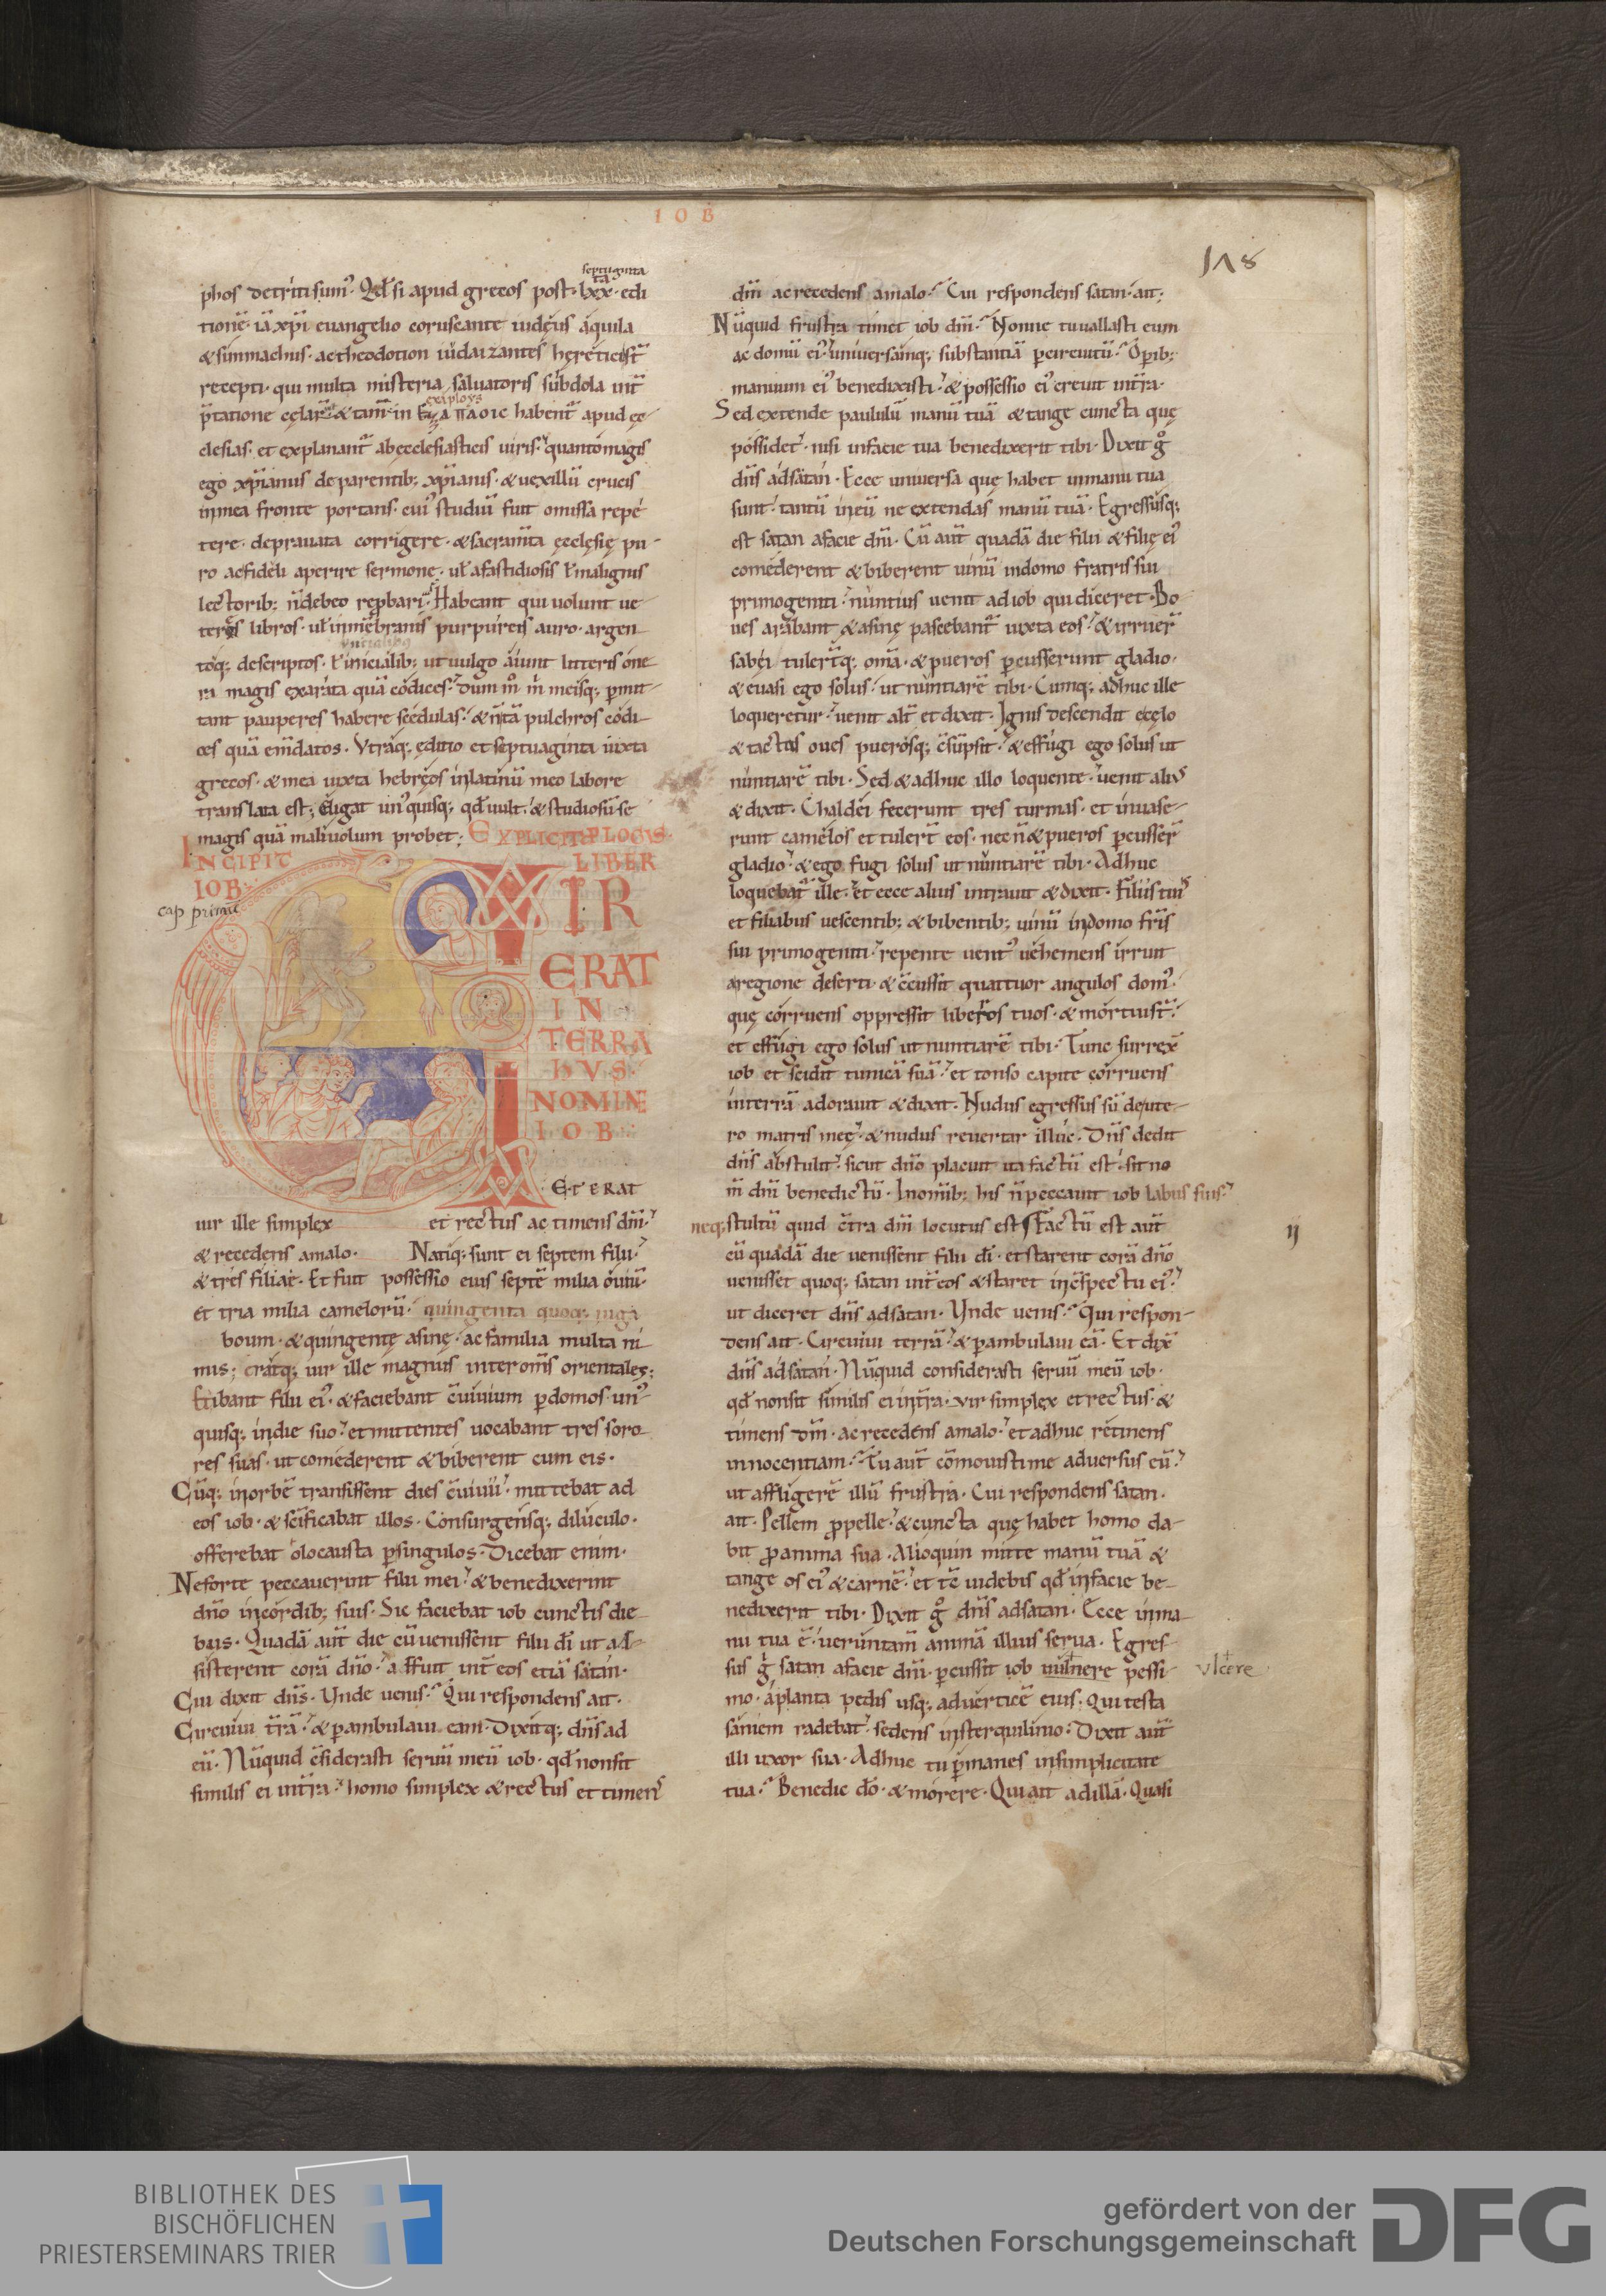 I O B
118
septuaginta
phos detriti sum᾽. Qđ si apud grecos post. lxx. edi
tionē. iā xp̄i euangelio coruscante iudęus aquila
& simmachus. ac theodotion iudaizantes heretici st̄
recepti. qui multa misteria saluatoris subdola int̄
p̄tatione cęlar̄. & tam̄ in habent̄ apud ęc
clesias. et explanant̄ ab ecclesiasticis uiris. quanto magis
ego xp̄ianus de parentib; xp̄ianis. & uexillū crucis
in mea fronte portans. cui᾽ studiū fuit omissa repe
tere. deprauata corrigere. & sacram̄ta ęcclęsię pu
ro ac fideli aperire sermone. ul̄ a fastidiosis ł malignis
lectorib; n̄ debeo rep̄bari. Habeant qui uolunt ue
teres libros. ul̄ in mēbranis purpureis auro. argen
toq; descriptos. ł inicialib; ut uulgo aiunt litteris one
ra magis exarata quā codices. dum m̊ m̄ meisq; p̄mit
tant pauperes habere scedulas. & n̄ tā pulchros codi
ces quā em̄datos. Vtraq; ęditio et septuaginta iuxta
grecos. & mea iuxta hebręos in latinū meo labore
translata est; Eligat un᾽quisq; qđ uult. & studiosū se
magis quā maliuolum probet; EXPLICIT PLOGVS.
INCIPIT LIBER
IOB.
cap primū
VIR
ERAT
IN
TERRA
HVS.
NOMINE
I O B
E·T ERAT
uir ille simplex et rectus ac timens dm̄.
& recedens a malo. Natiq; sunt ei septem filii.
& tres filiae. Et fuit possessio eius septē milia ouiū.
et tria milia camelorū. quingenta quoq; iuga
boum. & quingentę asinę. ac familia multa ni
mis; eratq; uir ille magnus inter om̄s orientales;
Et ibant filii ei᾽. & faciebant c̄uiuium p̄ domos. un᾽
quisq; in die suo. et mittentes uocabant tres soro
res suas. ut comederent & biberent cum eis.
Cūq; in orbē transissent dies c̄uiuii. mittebat ad
eos iob. & sc̄ificabat illos. Consurgensq; diluculo.
offerebat olocausta p̄ singulos. Dicebat enim.
Ne forte peccauerint filii mei. & benedixerint
dn̄o in cordib; suis. Sic faciebat iob cunctis die
bus. Quadā aut̄ die cū uenissent filii di̅ ut ad
sisterent corā dn̄o. affuit int̄ eos etiā satan.
Cui dixit dn̄s. Vnde uenis. Qui respondens ait.
Circuiui t̄rā. & p̄ambulaui eam. Dixitq; dn̄s ad
eū. Nūquid c̄siderasti seruū meū iob. qđ non sit
similis ei in t̄ra. homo simplex & rectus et timens
dm̄ ac recedens a malo. Cui respondens satan. ait;
Nūquid frustra timet iob dm̄. Nonne tu uallasti eum
ac domū ei᾽. uniuersamq; substantiā p̄ circuitū. Op̄ib;
manuum ei᾽ benedixisti. & possessio ei᾽ creuit in t̄ra.
Sed extende paululū manū tuā & tange cuncta quę
possidet. nisi in facie tua benedixerit tibi. Dixit g̊
dn̄s ad satan. Ecce uniuersa quę habet in manu tua
sunt. tantū in eū ne extendas manū tuā. Egressusq;
est satan a facie dm̄. Cū aut̄ quadā die filii & filię ei᾽
comederent & biberent uinū in domo fratris sui
primogeniti. nuntius uenit ad iob qui diceret. Bo
ues arabant & asinę pascebant̄ iuxta eos. & irruer̄
sabęi tulert̄q; om̄a. & pueros p̄cusserunt gladio.
& euasi ego solus. ut nuntiarē tibi. Cumq; adhuc ille
loqueretur. uenit alt̄ et dixit. Ignis descendit e cęlo
& tactas oues puerosq; c̄sūpsit. & effugi ego solus ut
nuntiarē tibi. Sed & adhuc illo loquente. uenit alius
& dixit. Chaldei fecerunt tres turmas. et inuase
runt camelos et tuler̄t eos. nec n̄ & pueros p̄cusser̄
gladio. & ego fugi solus ut nuntiarē tibi. Adhuc
loquebat̄ ille. et ecce alius intrauit & dixit. Filiis tuis
et filiabus uescentib; & bibentib; uinū in domo fr̄is
sui primogeniti. repente uent᾽ uehemens irruit
a regione deserti. & c̄cussit quattuor angulos dom᾽.
quę corruens oppressit liberos tuos. & mortui st̄.
et effugi ego solus ut nuntiarē tibi. Tunc surrex̄
iob et scidit tunicā suā. et tonso capite corruens
in terrā adorauit & dixit. Nudus egressus sū de ute
ro matris meę. & nudus reuertar illuc. Dn̄s dedit
dn̄s abstulit. sicut dn̄o placuit ita factū est. sit no
m̄ dm̄ benedictū. In om̄ib; his n̄ peccauit iob labiis suis.
neq; stultū quid c̄tra dm̄ locutus est. Factū est aut̄
ij
cū quadā die uenissent filii di̅. et starent corā dn̄o
uenisset quoq; satan int̄ eos & staret in c̄spectu ei᾽.
ut diceret dn̄s ad satan. Vnde uenis. Qui respon
dens ait. Circuiui terrā. & p̄ambulaui eā. Et dix̄
dn̄s ad satan. Nūquid considerasti seruū meū iob.
qđ non sit similis ei in t̄ra. vir simplex et rectus. &
timens dm̄. ac recedens a malo. et adhuc retinens
innocentiam. Tu aut̄ cōmouisti me aduersus eū.
ut affligerē illū frustra. Cui respondens satan.
ait. Pellem p̄ pelle. & cuncta quę habet homo da
bit p̄ anima sua. Alioquin mitte manū tuā &
tange os ei᾽ & carnē. et tc̄ uidebis qđ in facie be
nedixerit tibi. Dixit g̊ dn̄s ad satan. Ecce in ma
nu tua ē. uerūntam̄ animā illius serua. Egres
sus g̊ satan a facie dm̄. p̄cussit iob uulnere pessi
vlcere
mo. a planta pedis usq; ad uerticē eius. Qui testa
saniem radebat. sedens in sterquilinio. Dixit aut̄
illi uxor sua. Adhuc tu p̄manes in simplicitate
tua. Benedic do̅. & morere. Qui ait ad illā. Quasi
BIBLIOTHEK DES
BISCHÖFLICHEN
PRIESTERSEMINARS TRIER
gefördert von der
Deutschen Forschungsgemeinschaft
DFG